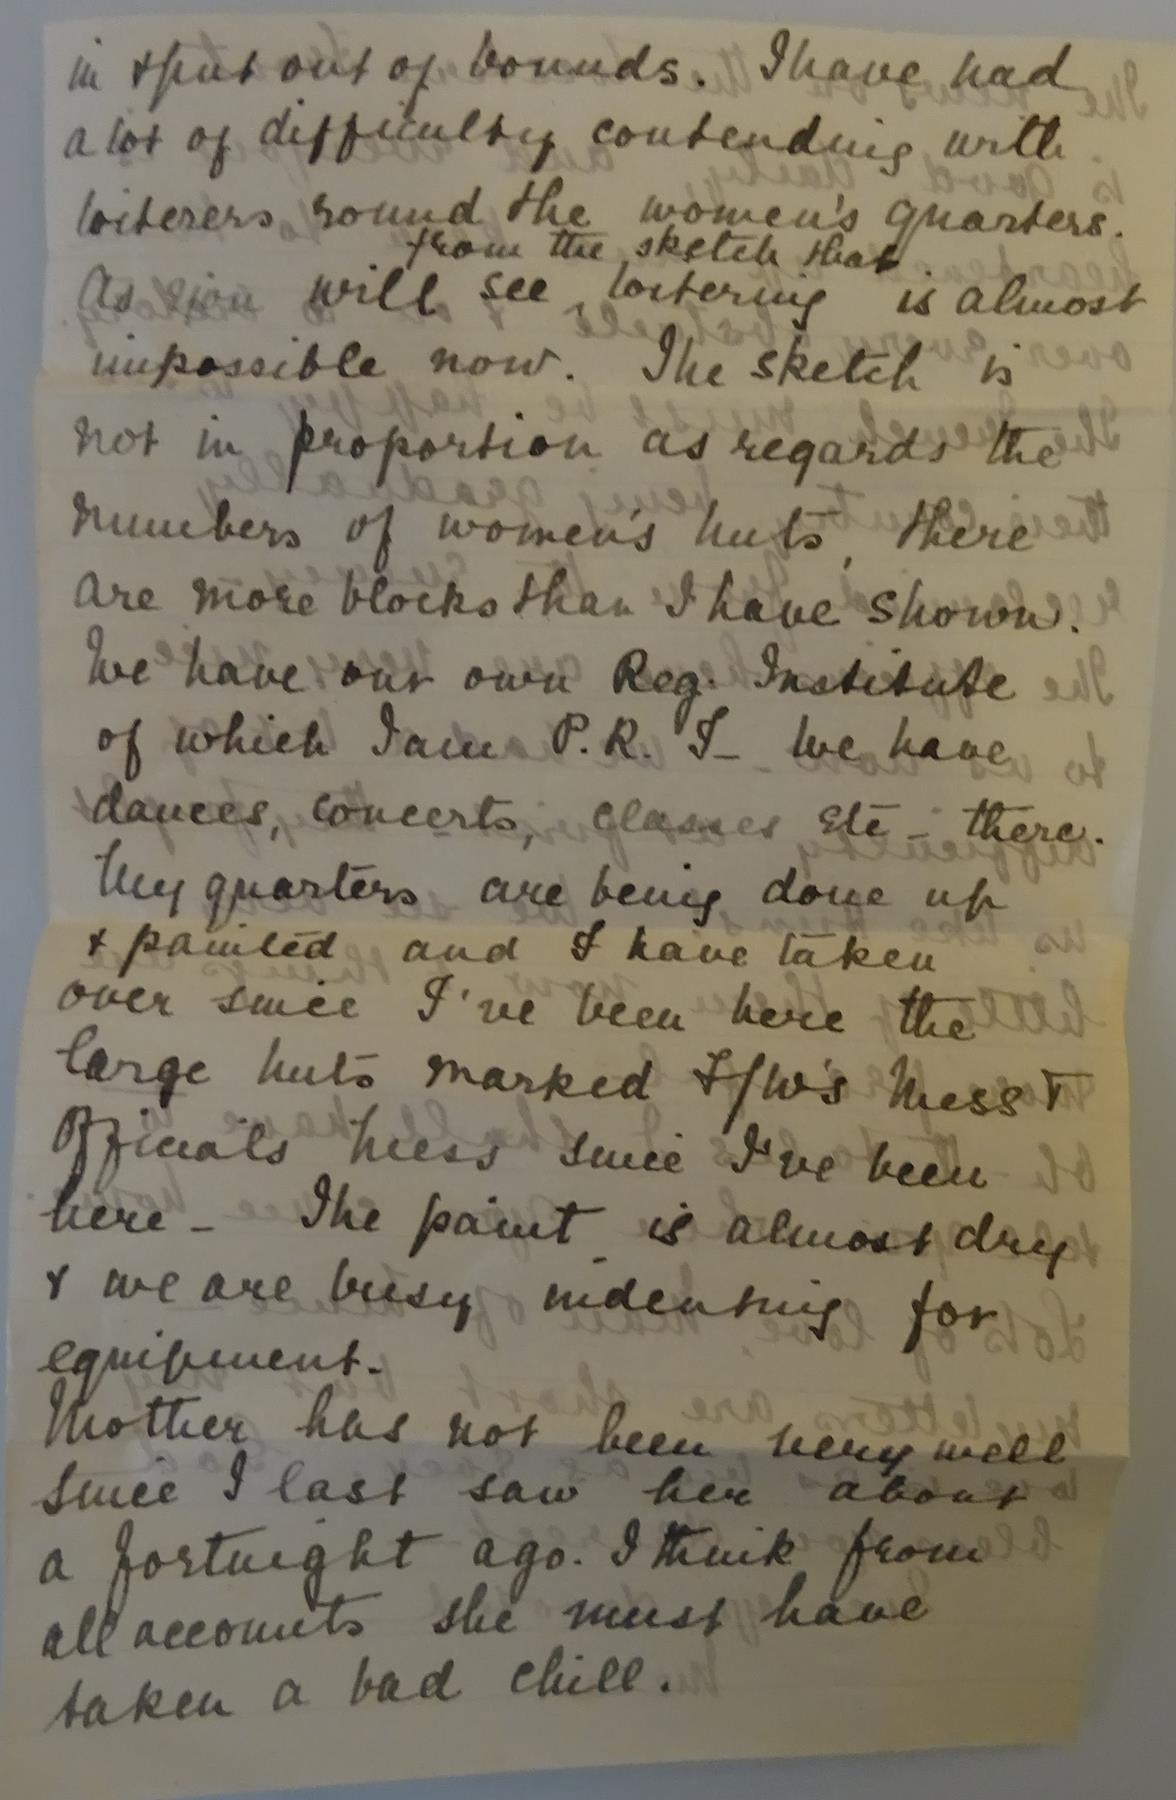 in & put out of bounds. I have had
a lot of difficulty contending with
loiterers round the women's quarters.
from the sketch that
As you will see, loitering is almost
impossible now. The sketch is
not in proportion as regards the
numbers of women's huts, there
are more blocks than I have shown.
We have our own Reg. Institute
of which I am P.R.I - We have
dances, concerts, classes etc - there.
My quarters are being done up
& painted and I have taken
over since I've been here the
large huts marked F/W's Mess &
Officials Mess since I've been
here - The paint is almost dry
& we are busy indenting for
equipment.
Mother has not been very well
since I last saw her about
a fortnight ago. I think from
all accounts she must have
taken a bad chill.